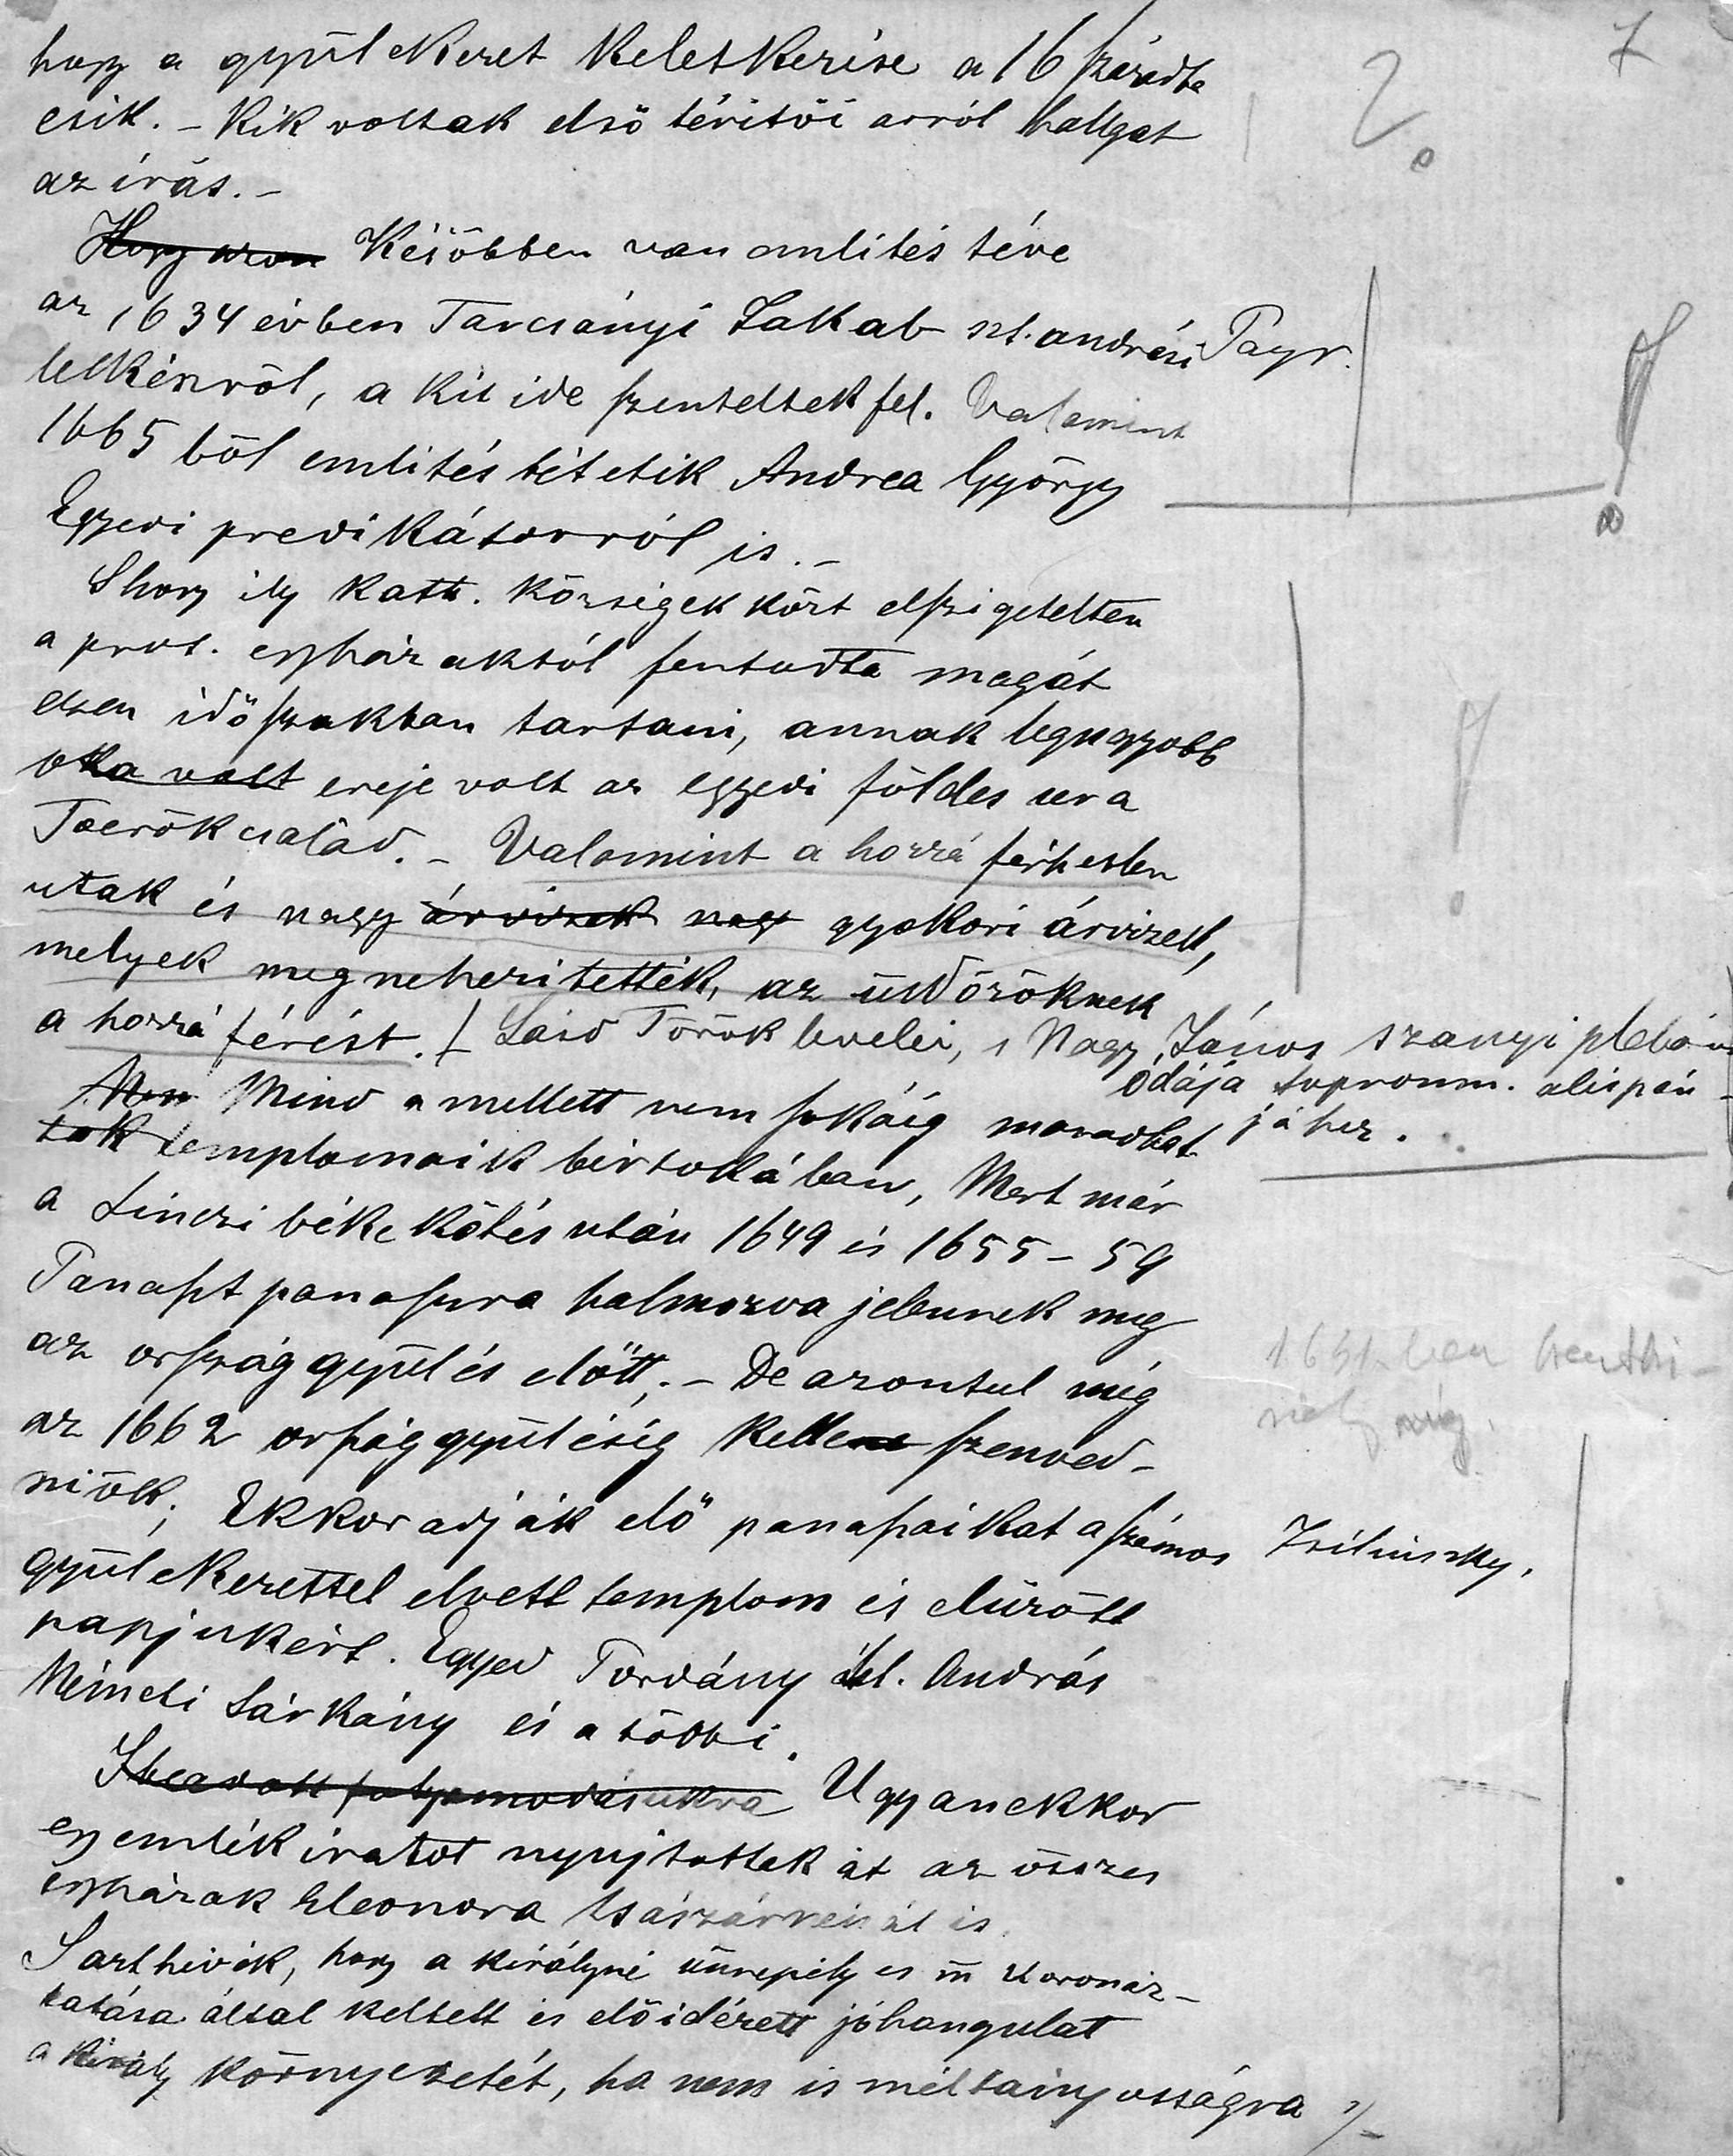 7
hogy a gyülekezet keletkezése a 16 századba
esik. – Kik voltak első téritöi arról hallgat
az írás. –
Hogy azon Későbben van emlités téve
az 1634 évben Tarcsányi Jakab szt. andrási Payr.
lelkészröl, a kit ide szenteltek fel. Valamint
1665 böl emlités tétetik Andrea György
Egyedi predikátorról is. –
S hogy ily kath. községek közt elszigetelten
a prot. egyházaktól fentudta magát
ezen időszakban tartani, annak legnagyobb
oka volt ereje volt az egyedi földes ura
Toerök család. – Valamint a hozzá férhetlen
utak és nagy árvizek nagy gyakori árvizek,
melyek megneheritették, az üldözöknek
a hozzá férést. / Lásd Török levelei, s Nagy János szanyi plebános
ódája sopronm. alispán-
jához.
Men Mind a mellett nem sokáig maradhat
tak templomaik birtokában, Mert már
a Linczi béke kötés után 1649 és 1655 – 59
Panaszt panaszra halmozva jelennek meg
az országgyülés előtt; – De azontul még
1631-ben
az 1662 országgyüléséig kellene szenved-
niök; Ekkor adják elő panaszaikat a számos Zsilinszky,
gyülekezettel elvett templom és elüzött
papjukért. Egyed Pordány Szt. András
Németi Sárkány és a többi.
Ugyanekkor
egy emlékiratot nyujtottak át az összes
egyházak Eleonora Császárnénál is.
S azt hivék, hogy a királyné ünnepély es koronáz-
tatása által keltett és előidézett jóhangulat
a király környezetét, ha nem is méltányosságra